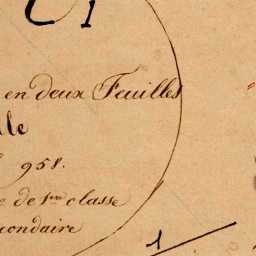 en deux Feuilles
lle
958.
de 1re classe
condaire
1